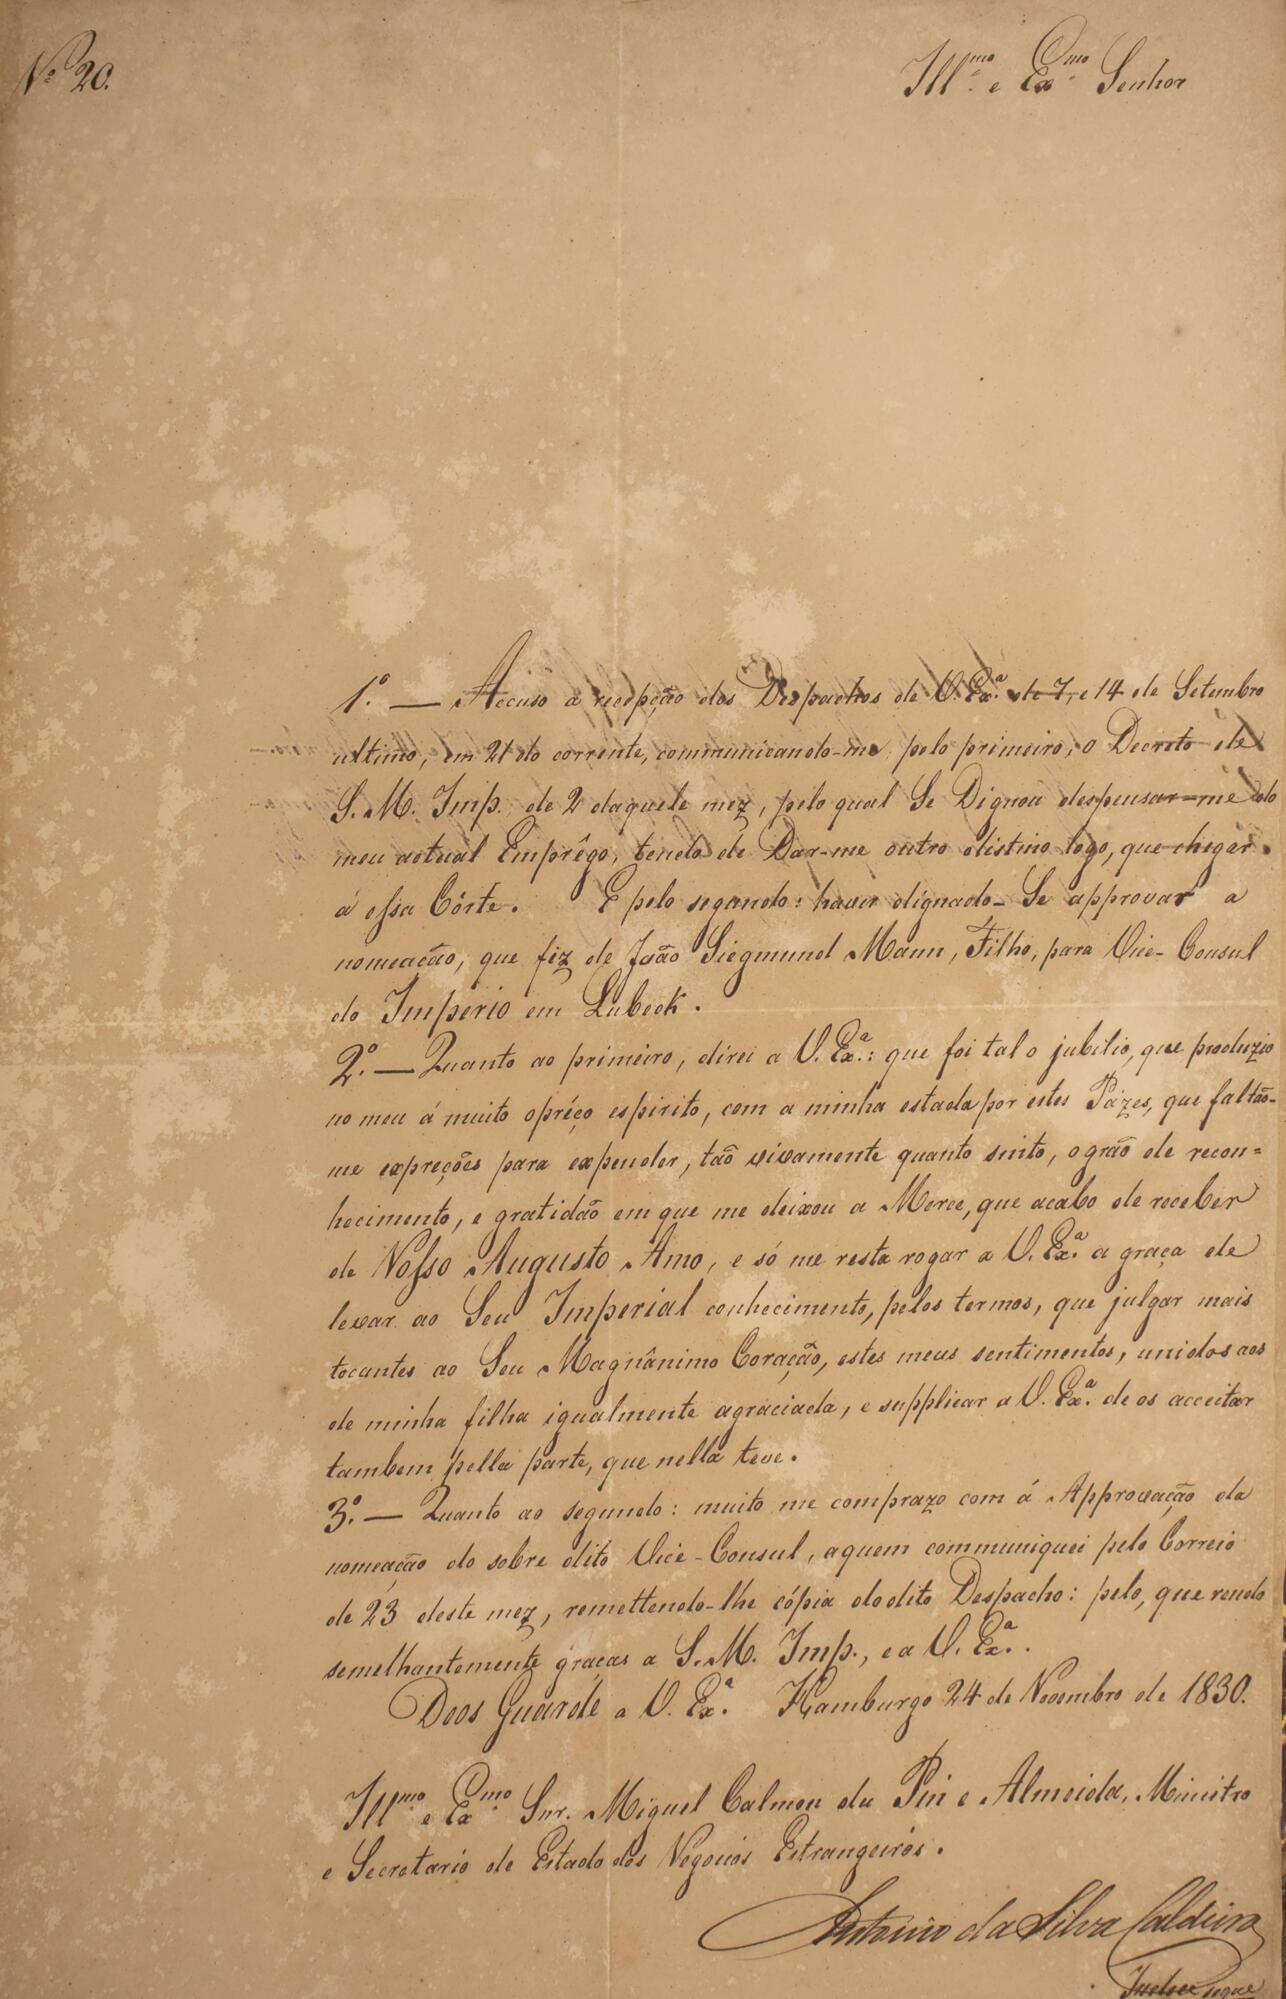 Nº 20.
Illmo. e Exmo. Senhor
1.º — Accuso a recepção dos Despachos de V. Exª. de 7, e 14 de Setembro
ultimo, em 21 do corrente, communicando-me pelo primeiro, o Decreto de
S. M. Imp. de 2 daquele mez, pelo qual Se Dignou despensar-me do
meu actual Emprêgo, tendo de Dar-me outro distino logo, que chegar
á essa Côrte. E pelo segundo: haver dignado-Se approvar a
nomeação, que fiz de João Siegmund Mann, Filho, para Vice-Consul
do Imperio em Lubeck.
2.º — Quanto ao primeiro, direi a V. Exª.: que foi tal o jubilio, que produzio
no meu á muito opréço espirito, com a minha estada por estes Páizes, que faltão-
me expreções para expender, tão vivamente quanto sinto, o gráo de recon=
hecimento, e gratidão em que me deixou a Merce, que acabo de receber
de Nosso Augusto Amo, e só me resta rogar a V. Exª. a graça de
levar ao Seu Imperial conhecimento, pelos termos, que julgar mais
tocantes ao Seu Magnânimo Coração, estes meus sentimentos, unidos aos
de minha filha igualmente agraciada, e supplicar a V. Exª. de os acceitar
tambem pella parte, que nella teve.
3.º — Quanto ao segundo: muito me comprazo com á Approvação da
nomeação do sobre dito Vice-Consul, aquem communiquei pelo Correio
de 23 deste mez, remettendo-lhe cópia do dito Despacho: pelo, que rendo
semelhantemente graças a S. M. Imp., e a V. Exª.
Deos Guarde a V. Exª. Hamburgo 24 de Novembro de 1830.
Illmo. e Exmo. Snr. Miguel Calmon du Pin e Almeida, Ministro
e Secretario de Estado dos Negocios Estrangeiros.
Antonio da Silva Caldeira
segue